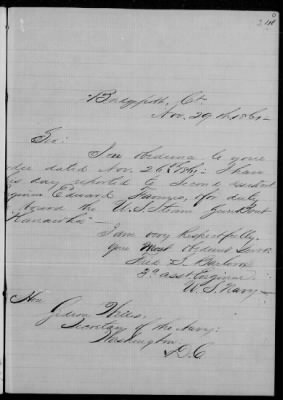 Bridgept. Ct.
Nov. 29th 1861-
Sir:
In obedience to your
order dated Nov. 26th 1861- I have
to day reported to Second assistant
Engineer Edward Farmer, for duty
on the U.S. Steam Gun Boat
Kanawha" -
I am very Respectfully.
Your Most Obedient Servt.
Fred S.
3d asst Engineer
U.S. Navy -
Hon.
Gideon Welles.
Secretary of the Navy:
Washington
D.C